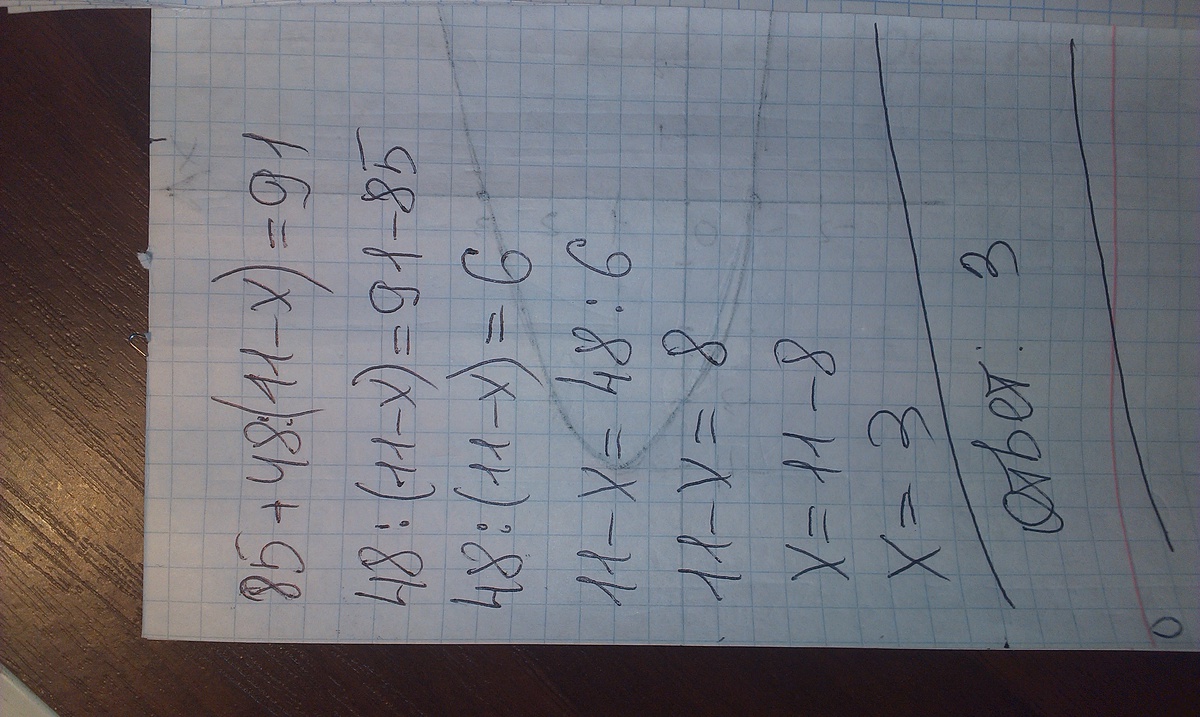 85+48:(11-x)=91
48:(11-x)=91-85
48:(11-x)=6
11-x=48:6
11-x=8
x=11-8
x=3
Ответ: 3